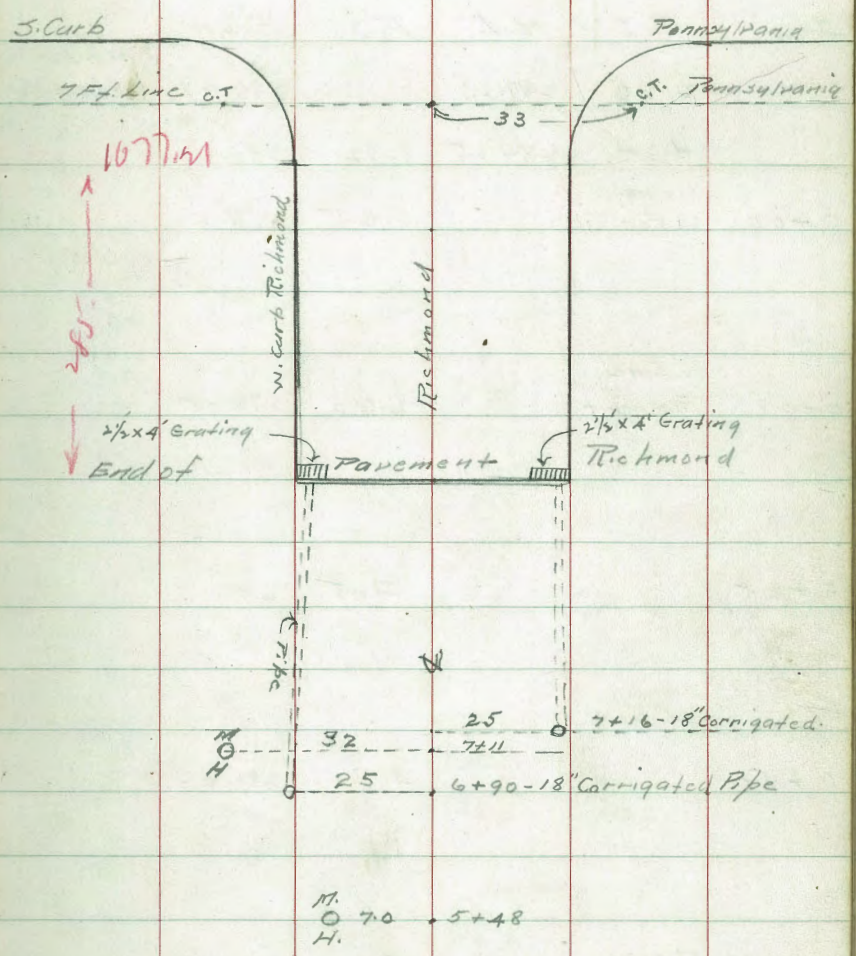 S. Curb Pennsylvania
7 Ft. Line C.T. C.T. Pennsylvania
33
285.
W. Curb Richmond
Richmond
2½ x 4' Grating 2½ x 4' Grating
End of Pavement Richmond
Pipe
℄
25 7+16-18" Corrigated.
M.H. 32 7+11
25 6+90-18" Corrigated Pipe
M.
7.0 5+48
H.